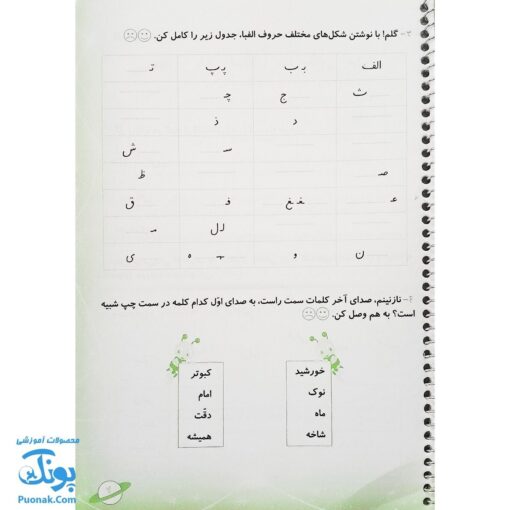 ۳- گلم! با نوشتن شکل‌های مختلف حروف الفبا، جدول زیر را کامل کن.
الف بـ ب پـ پ تـ
ث ج چـ
د ذ
سـ ش
صـ ظ
عـ ـغـ ـغ فـ ق
لـ ل مـ
ن و ـهـ ه ی
۴- نازنینم، صدای آخر کلمات سمت راست، به صدای اوّل کدام کلمه در سمت چپ شبیه
است؟ به هم وصل کن.
خورشید
نوک
ماه
شاخه
کبوتر
امام
دقّت
همیشه
محصولات آموزشی
پونک
Puonak.Com